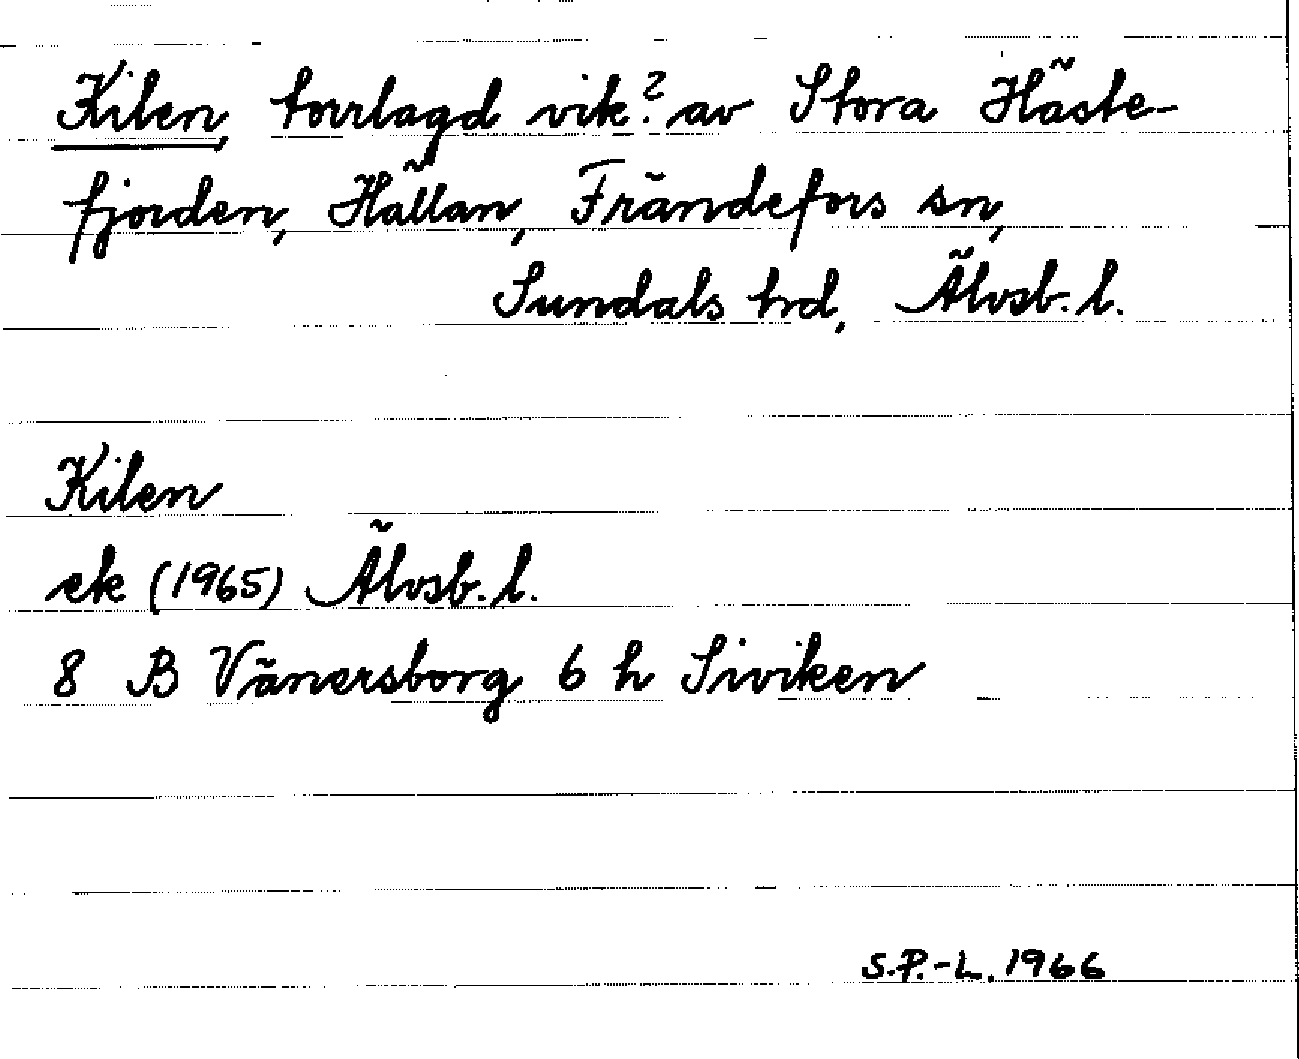 Kilen, torrlagd vik? av Stora Häste-
fjorden, Hällan, Frändefors sn,
Sundals hd, Älvsb. l.
Kilen
ek (1965) Älvsb. l.
8 B Vänersborg 6 h Siviken
S.P.-L. 1966